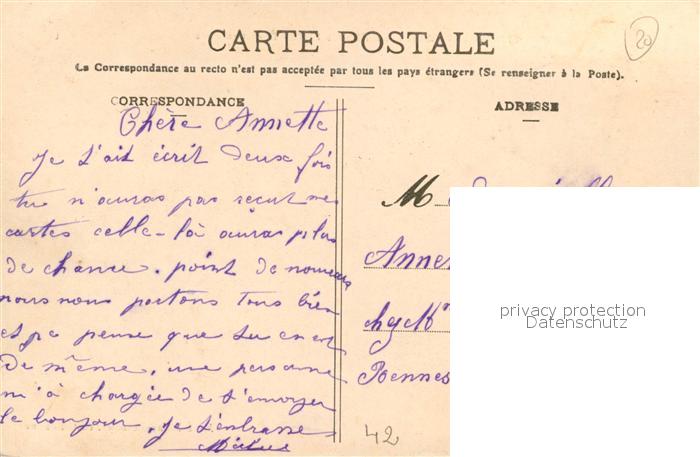 20
CARTE POSTALE
La Correspondance au recto n'est pas acceptée par tous les pays étrangers (Se renseigner à la Poste).
CORRESPONDANCE
ADRESSE
Chère Annette
Je t'ait écrit deux fois
tu n'auras pas recut mes
cartes celle-là auras plus
de chance. point de nouveau
nous nous portons tous bien
et pense que tu en est
de même, une personne
m'a chargée de t'envoyer
le bonjour. Je t'embrasse
M
Anne
chez Mr
Rennes
privacy protection
Datenschutz
42